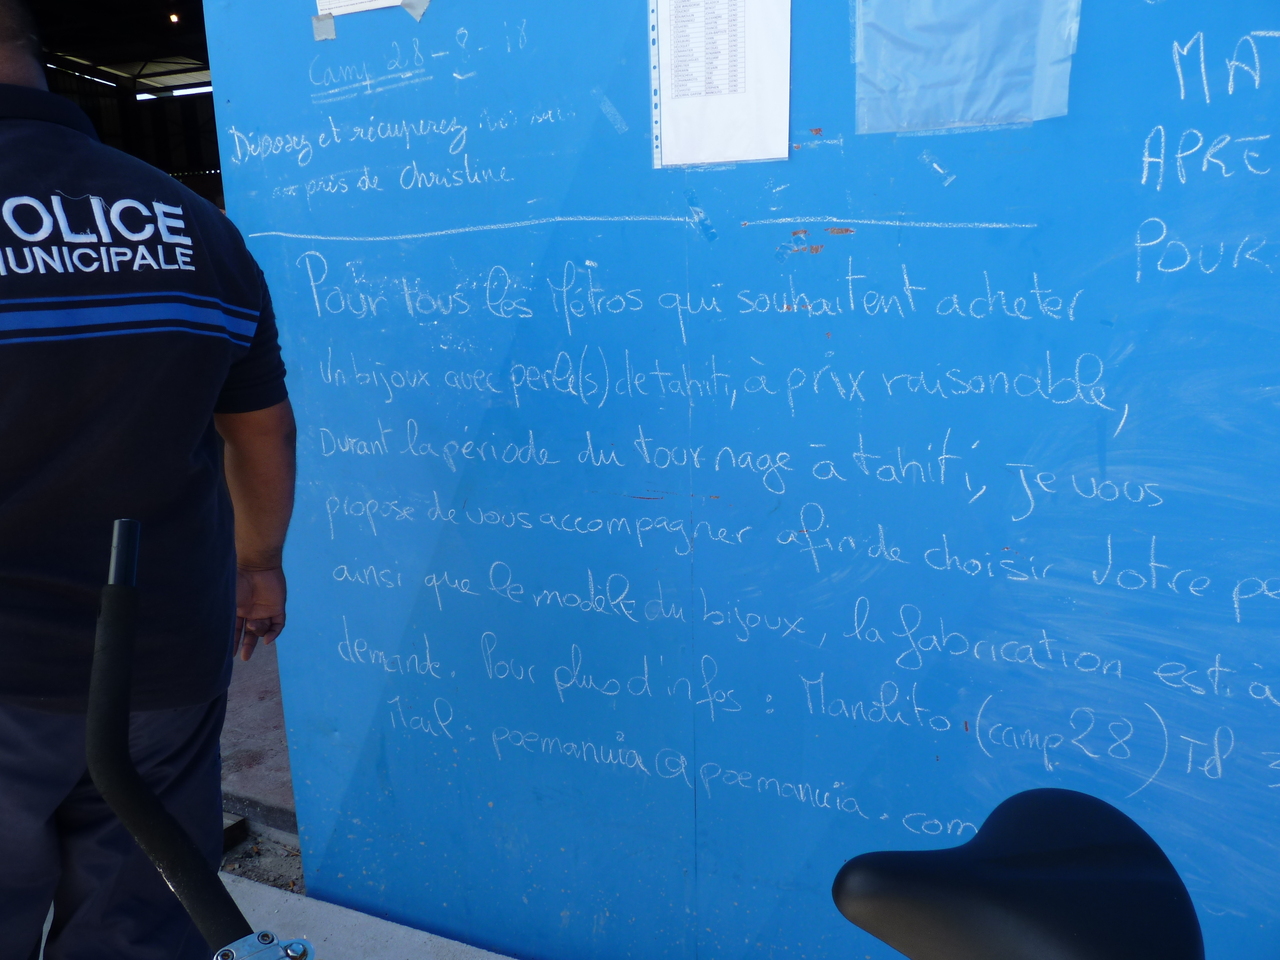 POLICE
MUNICIPALE
Camp 28-8-18
Déposez et récuperez
près de Christine
Pour tous les Métros qui souhaitent acheter
Un bijoux avec perle(s) de tahiti, à prix raisonable,
Durant la période du tournage à tahiti, je vous
propose de vous accompagner afin de choisir votre pe
ainsi que le modèle du bijoux, la fabrication est à
demande. Pour plus d'infos : Manolito (camp 28) Tel
Mail : poemanuïa@poemanuïa.com
MAT
APRE
POUR